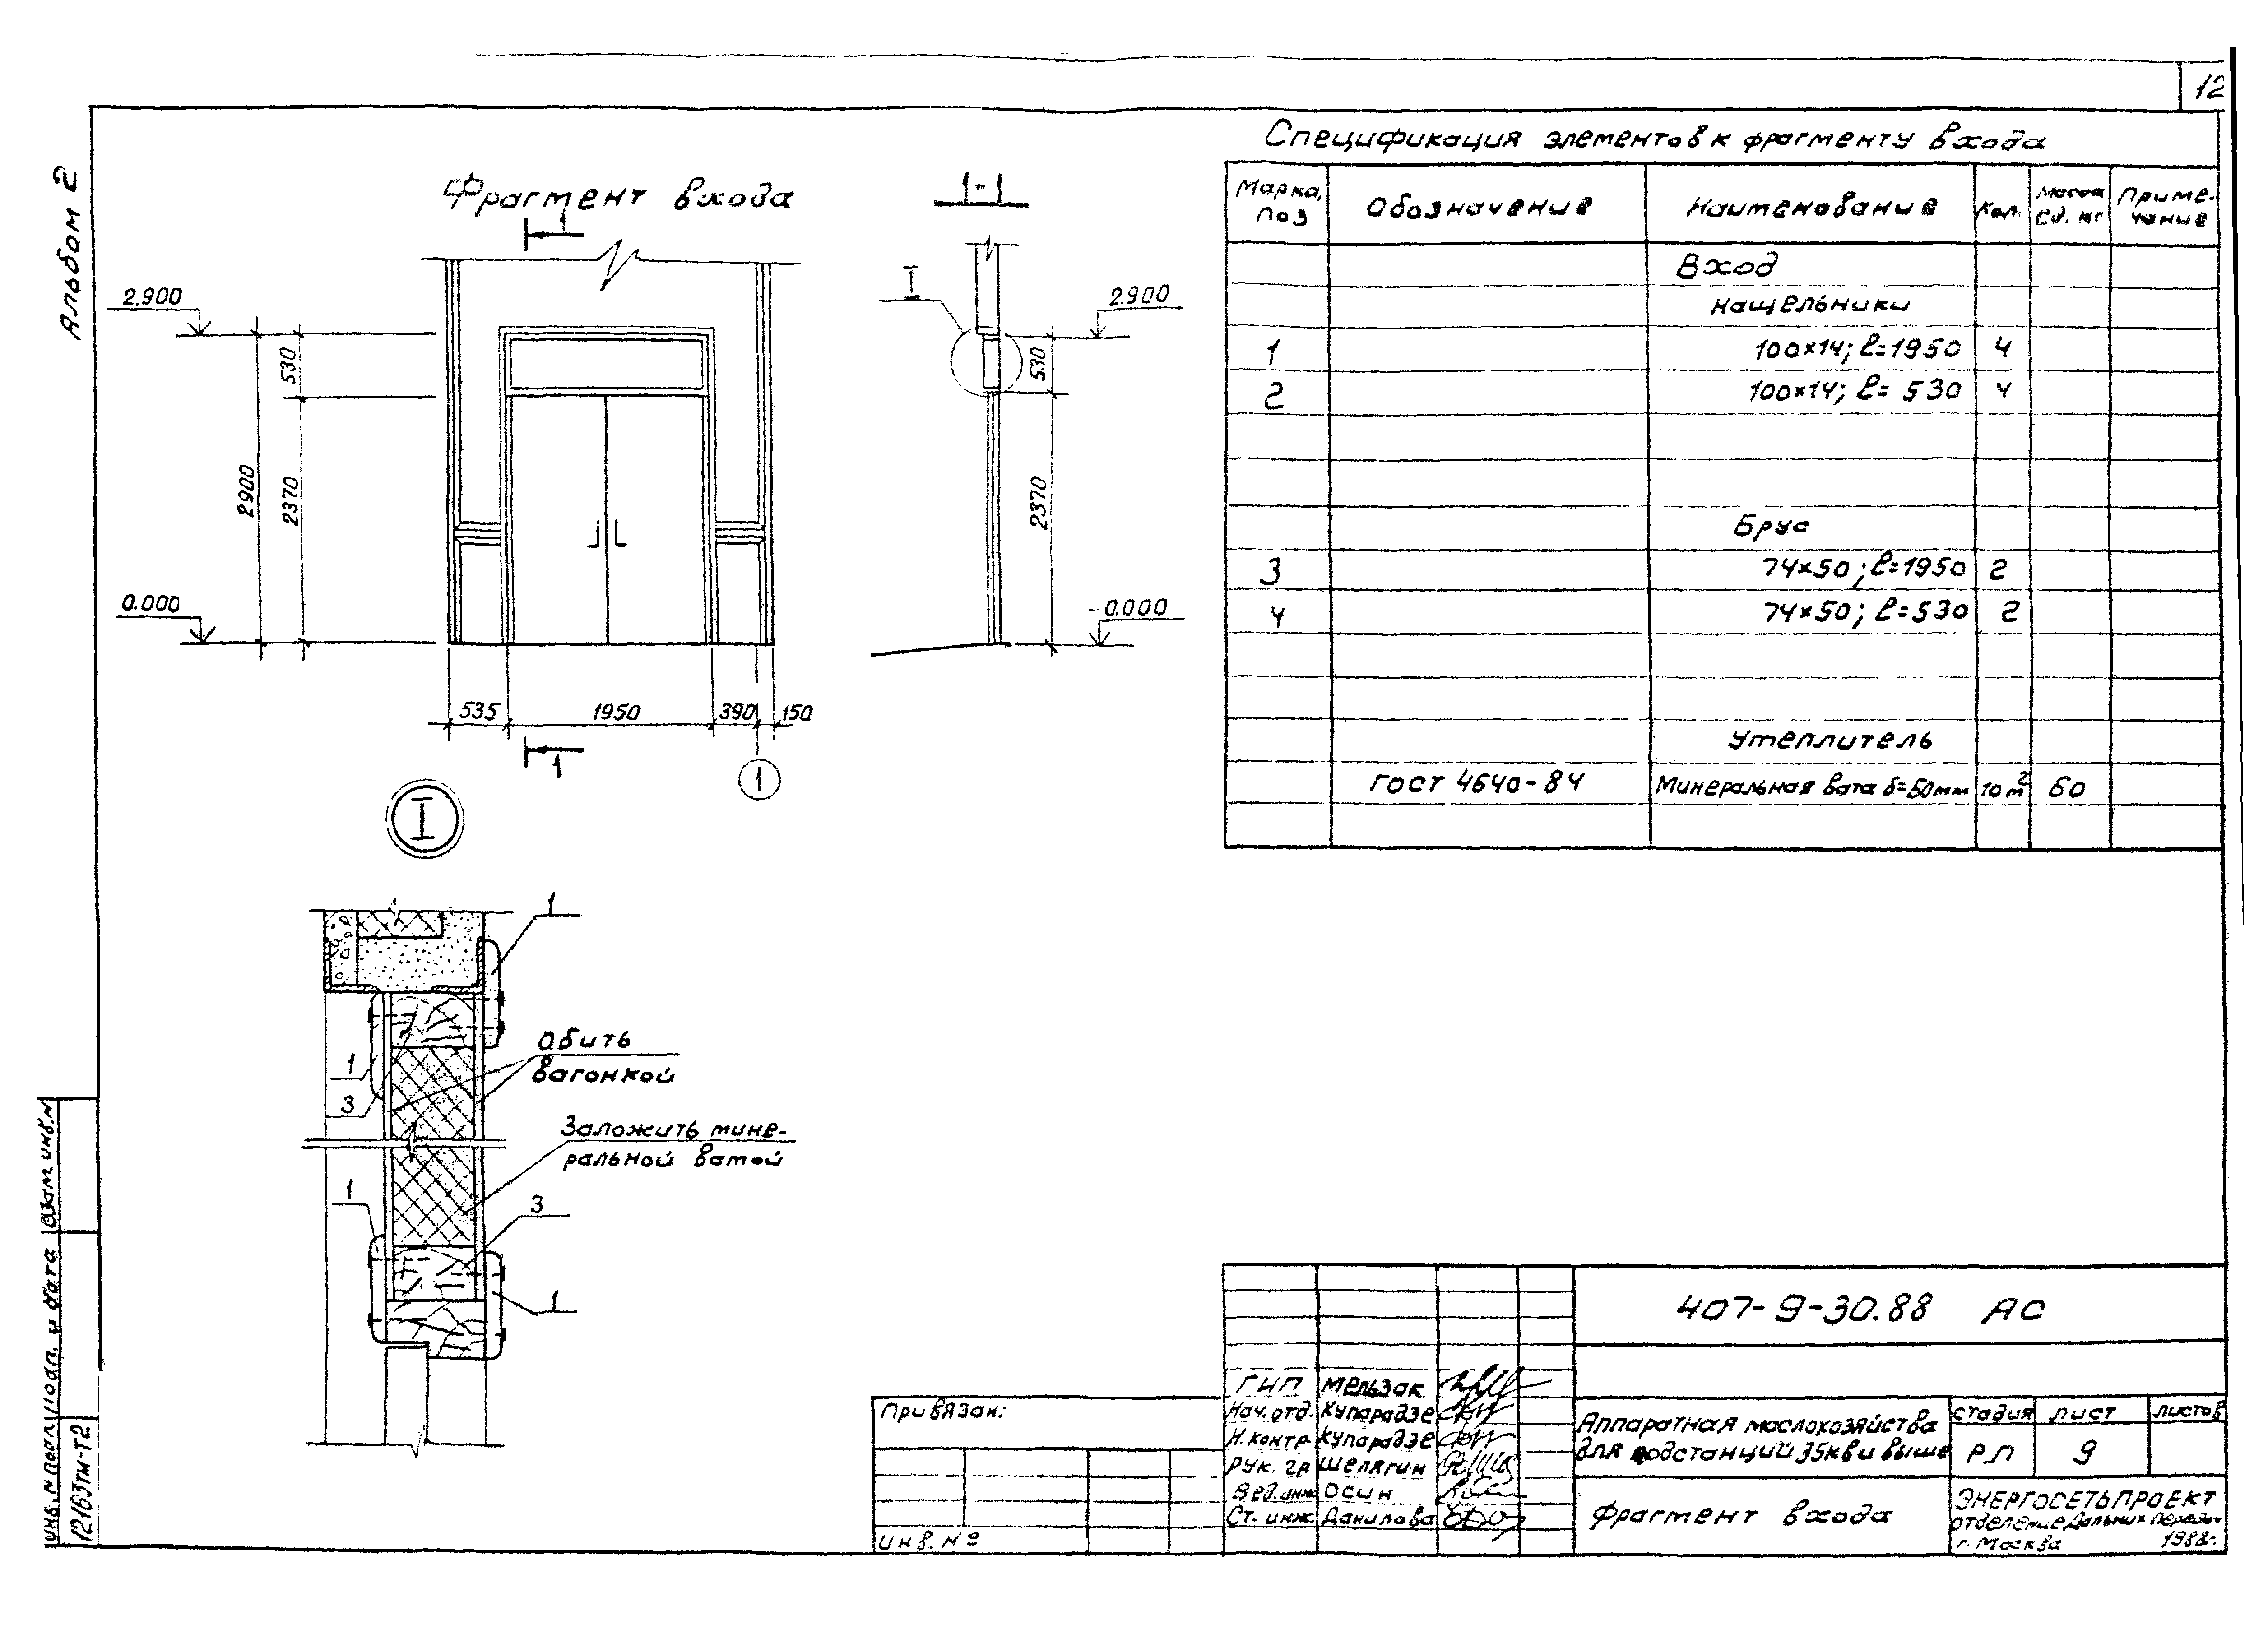 12
Альбом 2
Фрагмент входа
1
1
2.900
0.000
2900
530
2370
535
1950
390
150
1
1-1
I
2.900
530
2370
0.000
I
1
1
3
Обить
вагонкой
Заложить мине-
ральной ватой
1
3
1
Спецификация элементов к фрагменту входа
Марка, поз
Обозначение
Наименование
Кол.
Масса ед. кг
Приме-
чание
Вход
Нащельники
1 100×14; ℓ=1950 4
2 100×14; ℓ= 530 4
Брус
3 74×50; ℓ=1950 2
4 74×50; ℓ=530 2
Утеплитель
ГОСТ 4640-84 Минеральная вата δ=60мм 10м² 60
407-9-30.88 АС
ГИП Мельзак
Нач. отд. Купарадзе
Н. контр Купарадзе
Рук. гр Шелягин
Вед. инж Осин
Ст. инж Данилова
Аппаратная маслохозяйства
для подстанций 35кв и выше
Стадия Лист Листов
РП 9
Фрагмент входа
ЭНЕРГОСЕТЬПРОЕКТ
Отделение Дальних передач
г. Москва 1988г.
Привязан:
Инв. №
Взам. инв. №
Подп. и дата
Инв. № подл
12163тм-т2